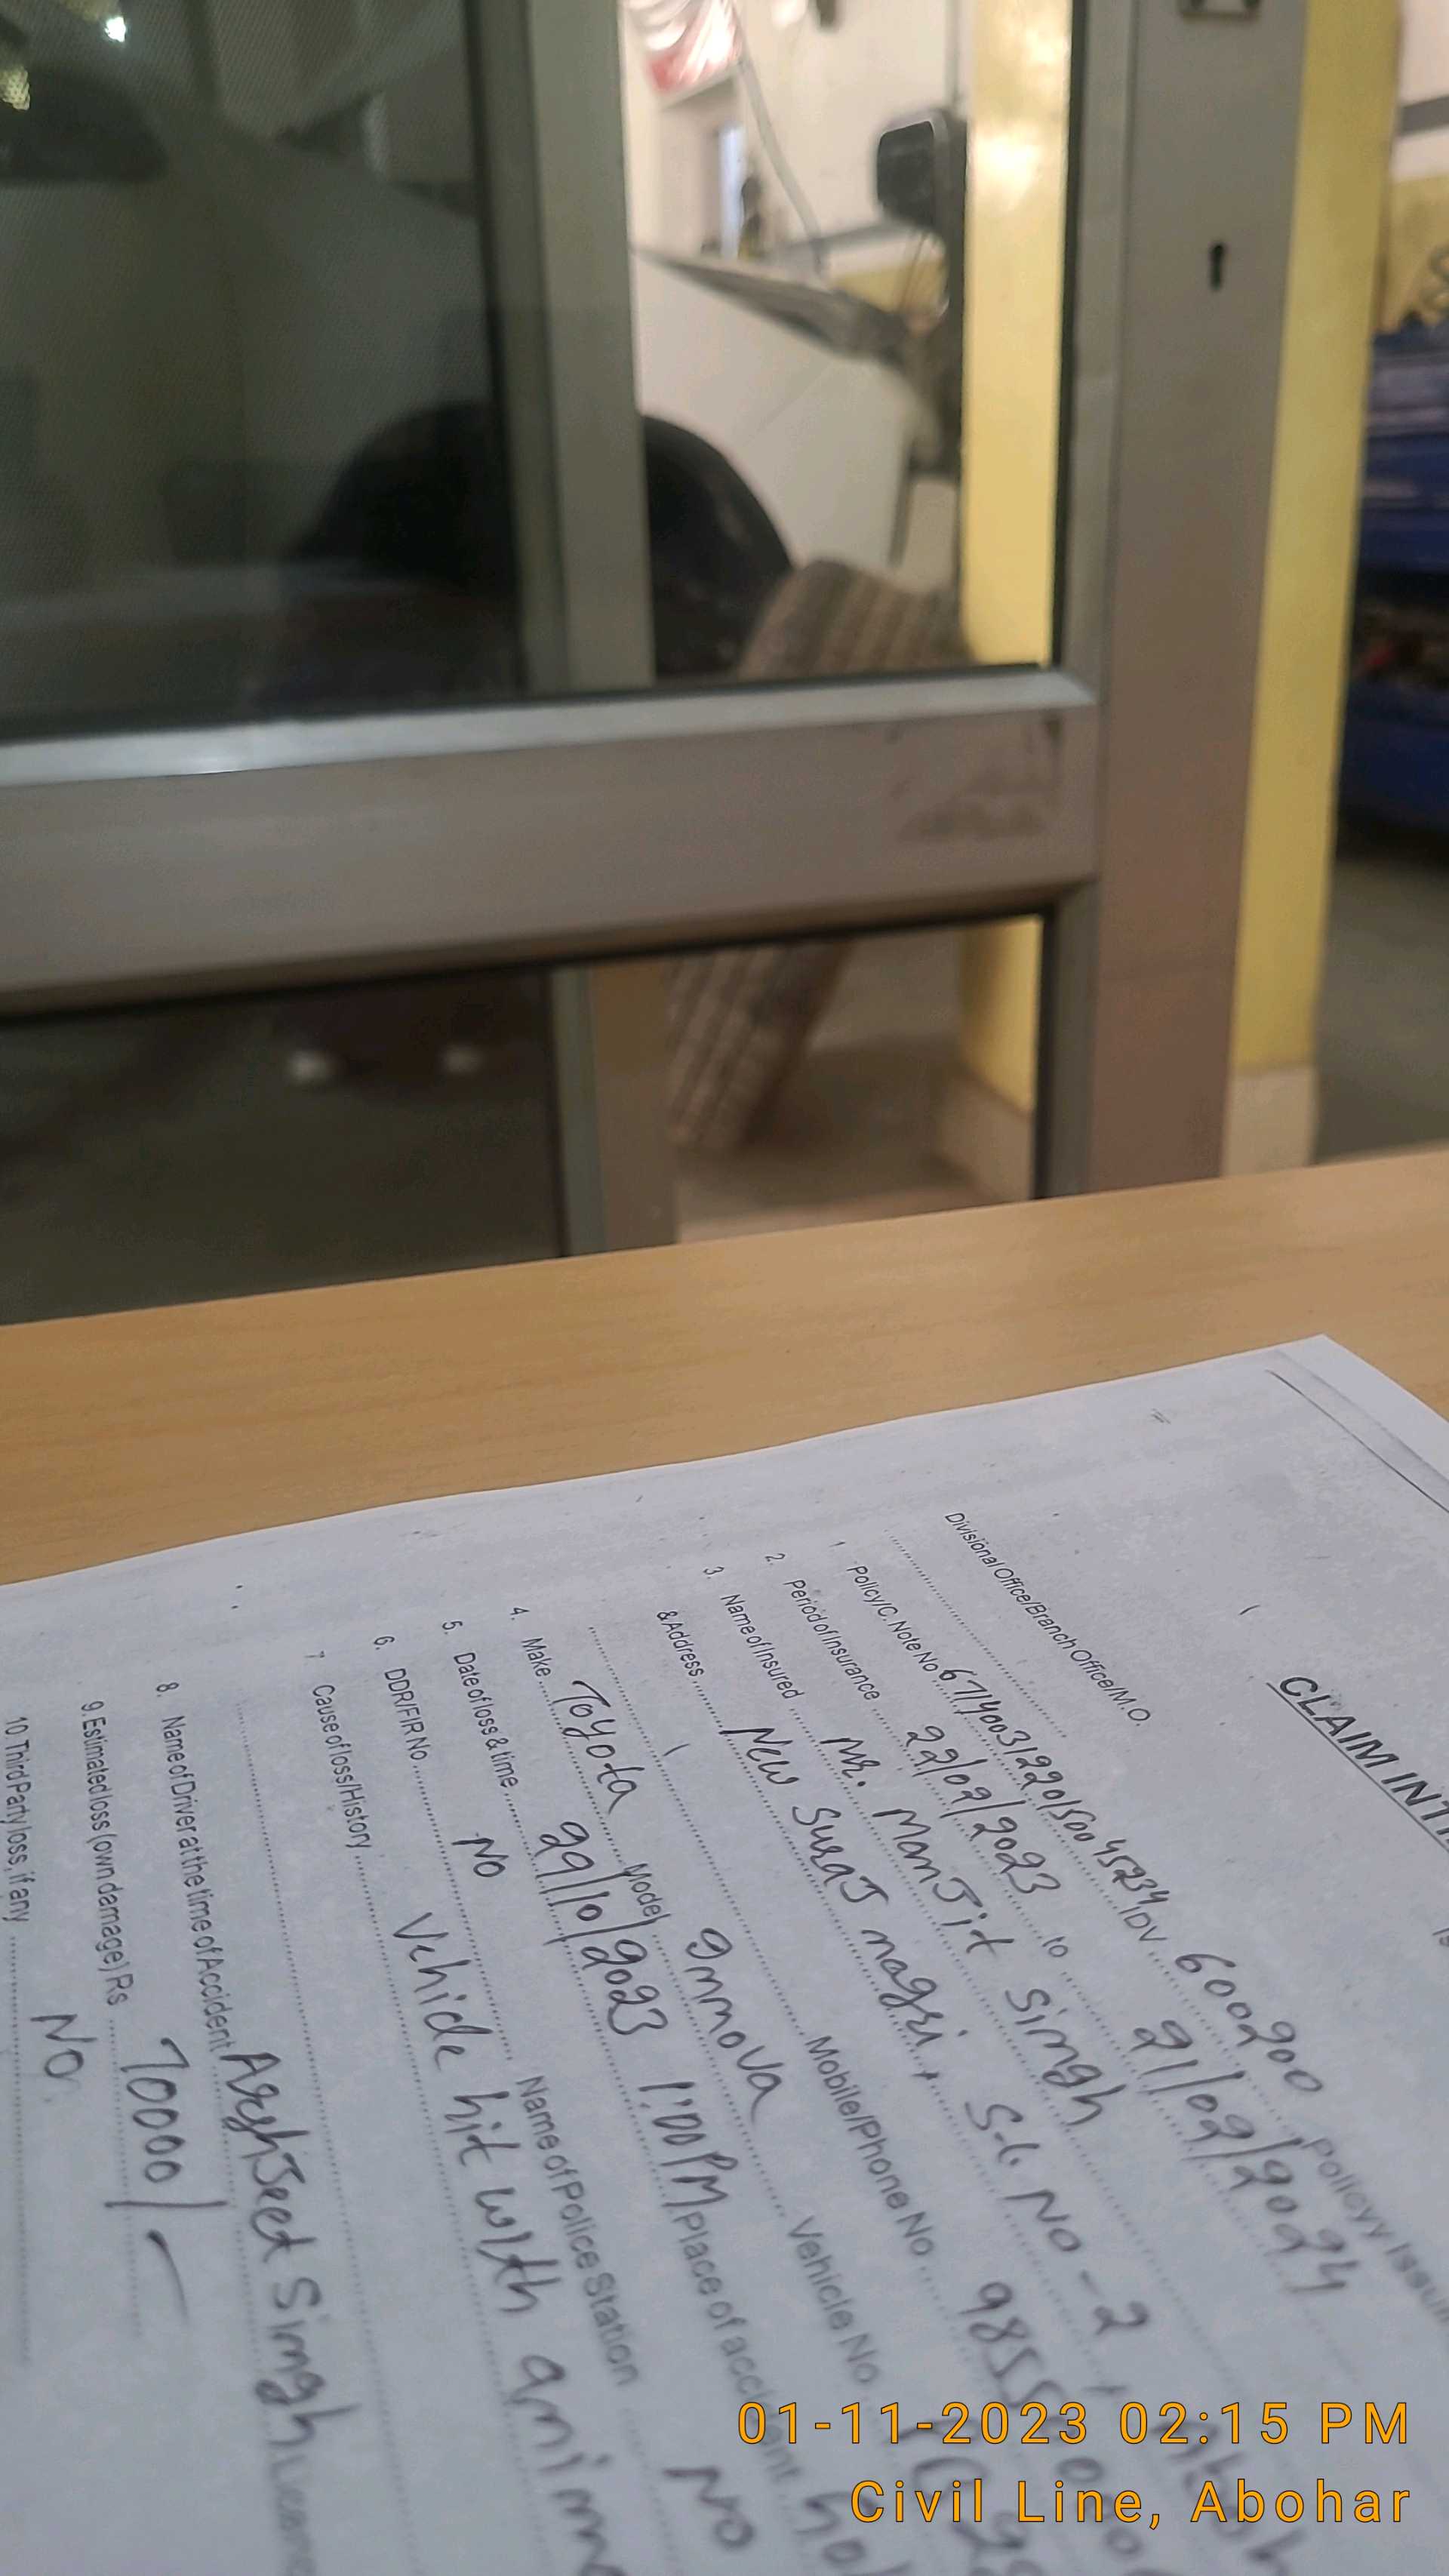 CLAIM INTI
Divisional Office/Branch Office/M.O.
1 Policy/C. Note No 67140031220150045234 IDV 600200 Policyy Issu
2. Period of Insurance 22/02/2023 to 21/02/2024
3. Name of Insured Mr. Manjit Singh
& Address New Suraj nagri, St. No - 2,
Mobile/Phone No. 9855
4. Make Toyota Model Innova Vehicle No.
5. Date of loss & time 29/10/2023 1:00 PM Place of accident
6. DDR/FIR No No Name of Police Station No
7 Cause of loss/History Vehicle hit with anim
8. Name of Driver at the time of Accident Singh
9. Estimated loss (own damage) Rs 70000/-
10. Third Party loss, if any No
01-11-2023 02:15 PM
Civil Line, Abohar